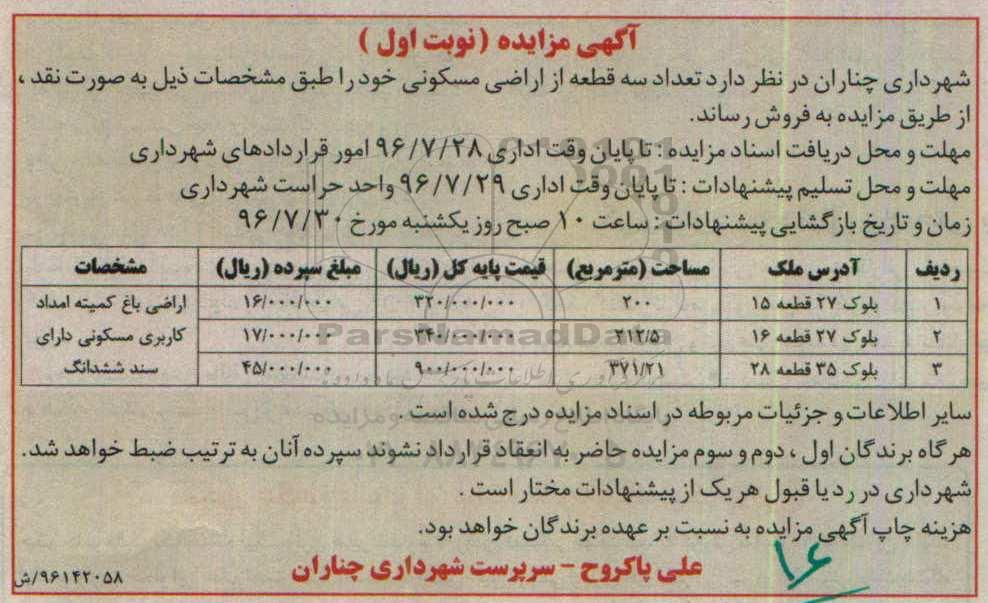 آگهی مزایده (نوبت اول)
شهرداری چناران در نظر دارد تعداد سه قطعه از اراضی مسکونی خود را طبق مشخصات ذیل به صورت نقد ،
از طریق مزایده به فروش رساند.
مهلت و محل دریافت اسناد مزایده : تا پایان وقت اداری ۹۶/۷/۲۸ امور قراردادهای شهرداری
مهلت و محل تسلیم پیشنهادات : تا پایان وقت اداری ۹۶/۷/۲۹ واحد حراست شهرداری
زمان و تاریخ بازگشایی پیشنهادات : ساعت ۱۰ صبح روز یکشنبه مورخ ۹۶/۷/۳۰
ردیف آدرس ملک مساحت (مترمربع) قیمت پایه کل (ریال) مبلغ سپرده (ریال) مشخصات
۱ بلوک ۲۷ قطعه ۱۵ ۲۰۰ ۳۲۰/۰۰۰/۰۰۰ ۱۶/۰۰۰/۰۰۰ اراضی باغ کمیته امداد
۲ بلوک ۲۷ قطعه ۱۶ ۲۱۲/۵ ۳۴۰/۰۰۰/۰۰۰ ۱۷/۰۰۰/۰۰۰ کاربری مسکونی دارای
۳ بلوک ۳۵ قطعه ۲۸ ۳۷۱/۲۱ ۹۰۰/۰۰۰/۰۰۰ ۴۵/۰۰۰/۰۰۰ سند ششدانگ
ParsNamadData
سایر اطلاعات و جزئیات مربوطه در اسناد مزایده درج شده است .
هرگاه برندگان اول ، دوم و سوم مزایده حاضر به انعقاد قرارداد نشوند سپرده آنان به ترتیب ضبط خواهد شد.
شهرداری در رد یا قبول هر یک از پیشنهادات مختار است .
هزینه چاپ آگهی مزایده به نسبت بر عهده برندگان خواهد بود.
علی پاکروح - سرپرست شهرداری چناران
۹۶۱۴۲۰۵۸/ش
۱۶